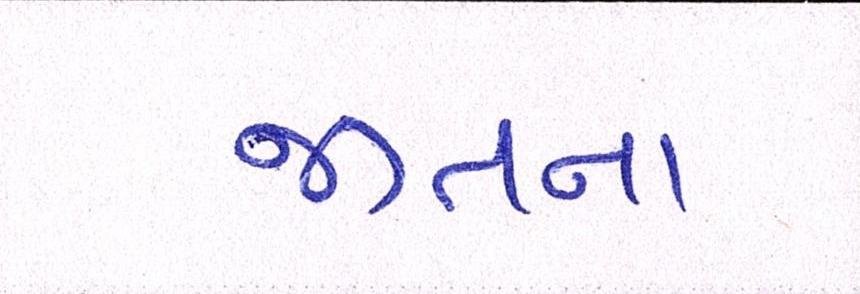 જાતના